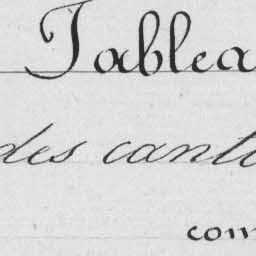 Tablea
des canto
com